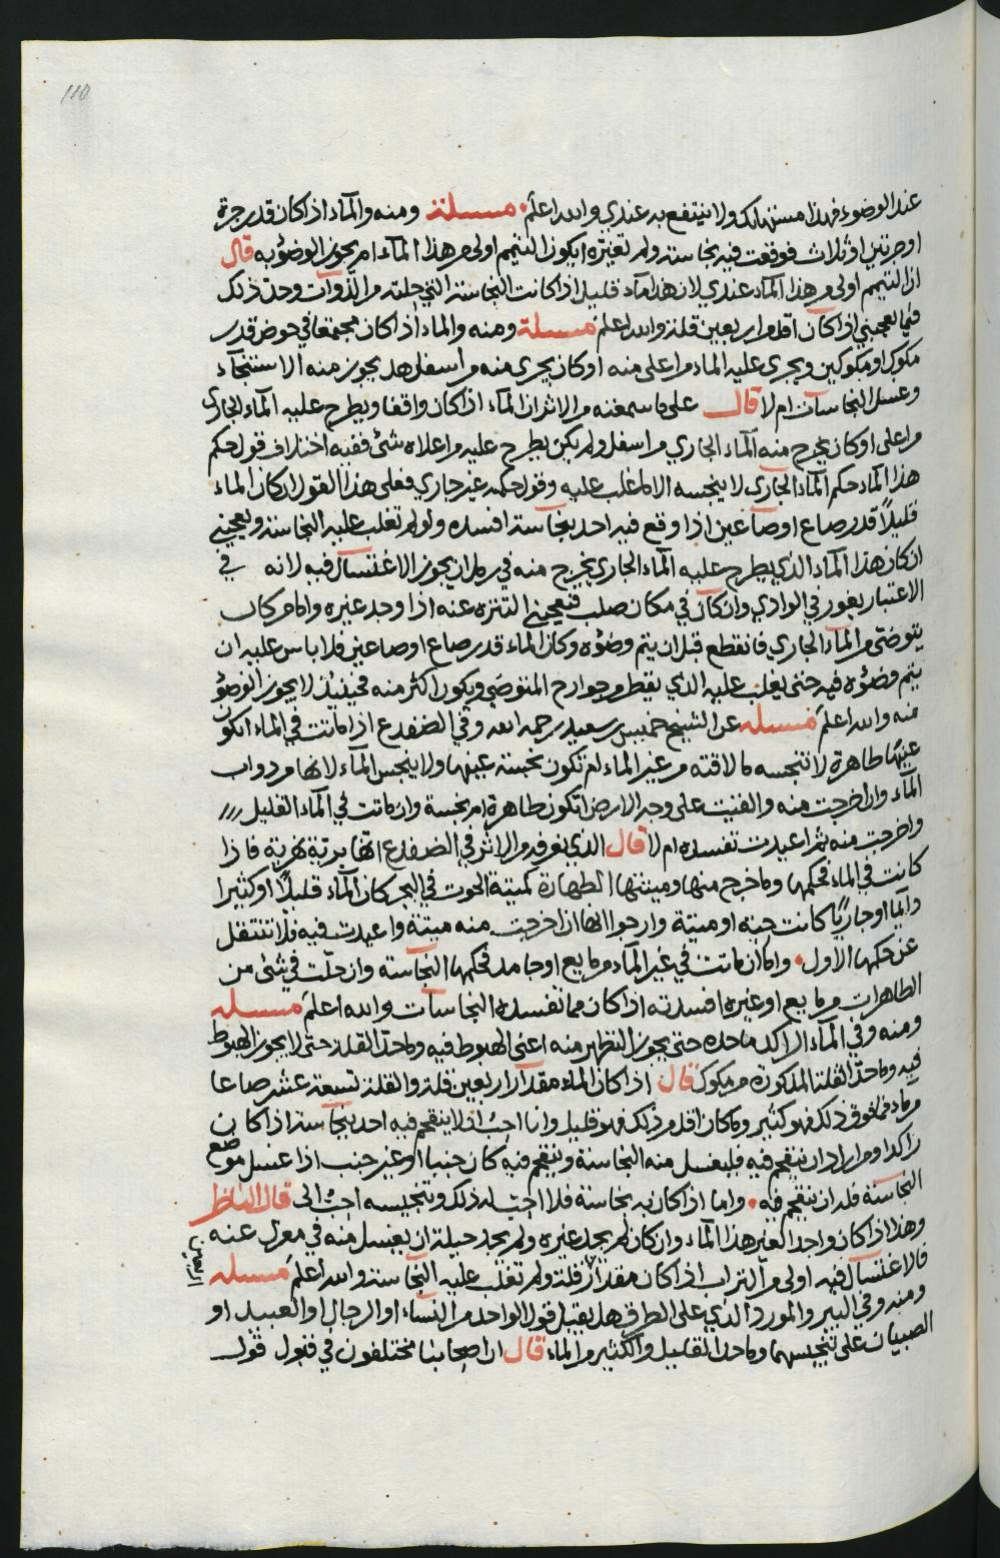 110
عند الوضوء فهذا مستهلك ولا ينتفع به عندي والله اعلم مسئلة ومنه والمآء اذا كان قدر جرة
او جرتين او ثلاث فوقعت فيه نجاسة ولم تغيره ايكون التيمم اولى من هذا المآء ام يجوز الوضوء به قال
ان التيمم اولى من هذا المآء عندي لان هذا مآء قليل اذا كانت النجاسة التي حلته من الذوات وحد ذلك
فيما يعجبني اذا كان اقل من اربعين قلة والله اعلم مسئلة ومنه والماء اذا كان مجتمعا في حوض قدر
مكوك او مكوكين ويجري عليه الماء من اعلى منه او كان يجري منه من اسفل هل يجوز منه الاستنجآء
وغسل النجاسات ام لا قال على ما سمعته من الاثر ان المآء اذا كان واقفا ويطرح عليه المآء الجاري
من اعلى او كان يخرج منه المآء الجاري من اسفل ولم يكن يطرح عليه من اعلاه شئ ففيه اختلاف قول حكم
هذا المآء حكم المآء الجاري لا ينجسه الا ما غلب عليه وقول حكمه غير جاري فعلى هذا القول ان كان الماء
قليلاً قدر صاع او صاعين اذا وقع فيه احد بنجاسة افسده ولو لم تغلب عليه النجاسة ويعجبني
ان كان هذا المآء الذي يطرح عليه المآء الجاري يخرج منه في رمل ان يجوز الاغتسال فيه لانه في
الاعتبار يغور في الوادي وان كان في مكان صلب فيعجبني التنزه عنه اذا وجد غيره واما من كان
يتوضئ من المآء الجاري فانقطع قبل ان يتم وضؤه وكان الماء قدر صاع او صاعين فلا باس عليه ان
يتم وضؤه فيه حتى يغلب عليه الذي يقطر من جوارح المتوضي ويكون اكثر منه فحينئذ لا يجوز الوضؤ
منه والله اعلم مسئله عن الشيخ خميس بن سعيد رحمه الله وفي الضفدع اذا ماتت في الماء اتكون
عينها طاهرة لا تنجسه ما لاقته من غير الماء ام تكون نجسة عينها ولا ينجس المآء لانها من دواب
المآء وان اخرجت منه والقيت على وجه الارض اتكون طاهرة ام نجسة وان ماتت في المآء القليل
واخرجت منه ثم اعيدت تفسده ام لا قال الذي نعرفه من الاثر في الضفدع انها برية نهرية فاذا
كانت في الماء فحكمها وما خرج منها وميتتها الطهارة كميتة الحوت في البحر كان المآء قليلاً او كثيرا
دايما او جاريًا كانت حيه او ميتة وارجو انها اذا خرجت منه ميتة واعيدت فيه فلا تنتقل
عن حكمها الاول واما ان ماتت في غير المآء من مايع او جامد فحكمها النجاسه وان حلت في شئ من
الطاهرات من مايع او غيره افسدته اذا كان مما تفسده النجاسات والله اعلم مسئله
ومنه وفي المآء الراكد ما حده حتى يجوز التطهر منه اعني الهبوط فيه وما حد القلة حتى لا يجوز الهبوط
فيه وما حد القلة المذكورة من مكوك قال اذا كان الماء مقدار اربعين قلة والقلة تسعة عشر صاعا
من ماء فما فوق ذلك فهو كثير وما كان اقل من ذلك فهو قليل وانا احب ان لا ينقحم فيه احد بنجاسة اذا كان
راكدا ومن اراد ان ينقحم فيه فليغسل منه النجاسة وينقحم فيه كان جنبا او غير جنب اذا غسل موضع
النجاسة فله ان ينقحم فيه واما اذا كان به نجاسة فلا احب له ذلك وتنجيسه احب الى قال الناظر
وهذا اذا كان واجد الغير هذا المآء وان كان لم يجد غيره ولم يجد حيلة ان يغسل منه في معزل عنه
فالاغتسال فيه اولى من التراب اذا كان مقدار قلة ولم تغلب عليه النجاسة والله اعلم مسئله
ومنه وفي البير والمورد الذي على الطرق هل يقبل قول الواحد من النساء او الرجال او العبيد او
الصبيان على تنجيسها وما حد القليل والكثير من الماء قال ان اصحابنا مختلفون في قبول قول